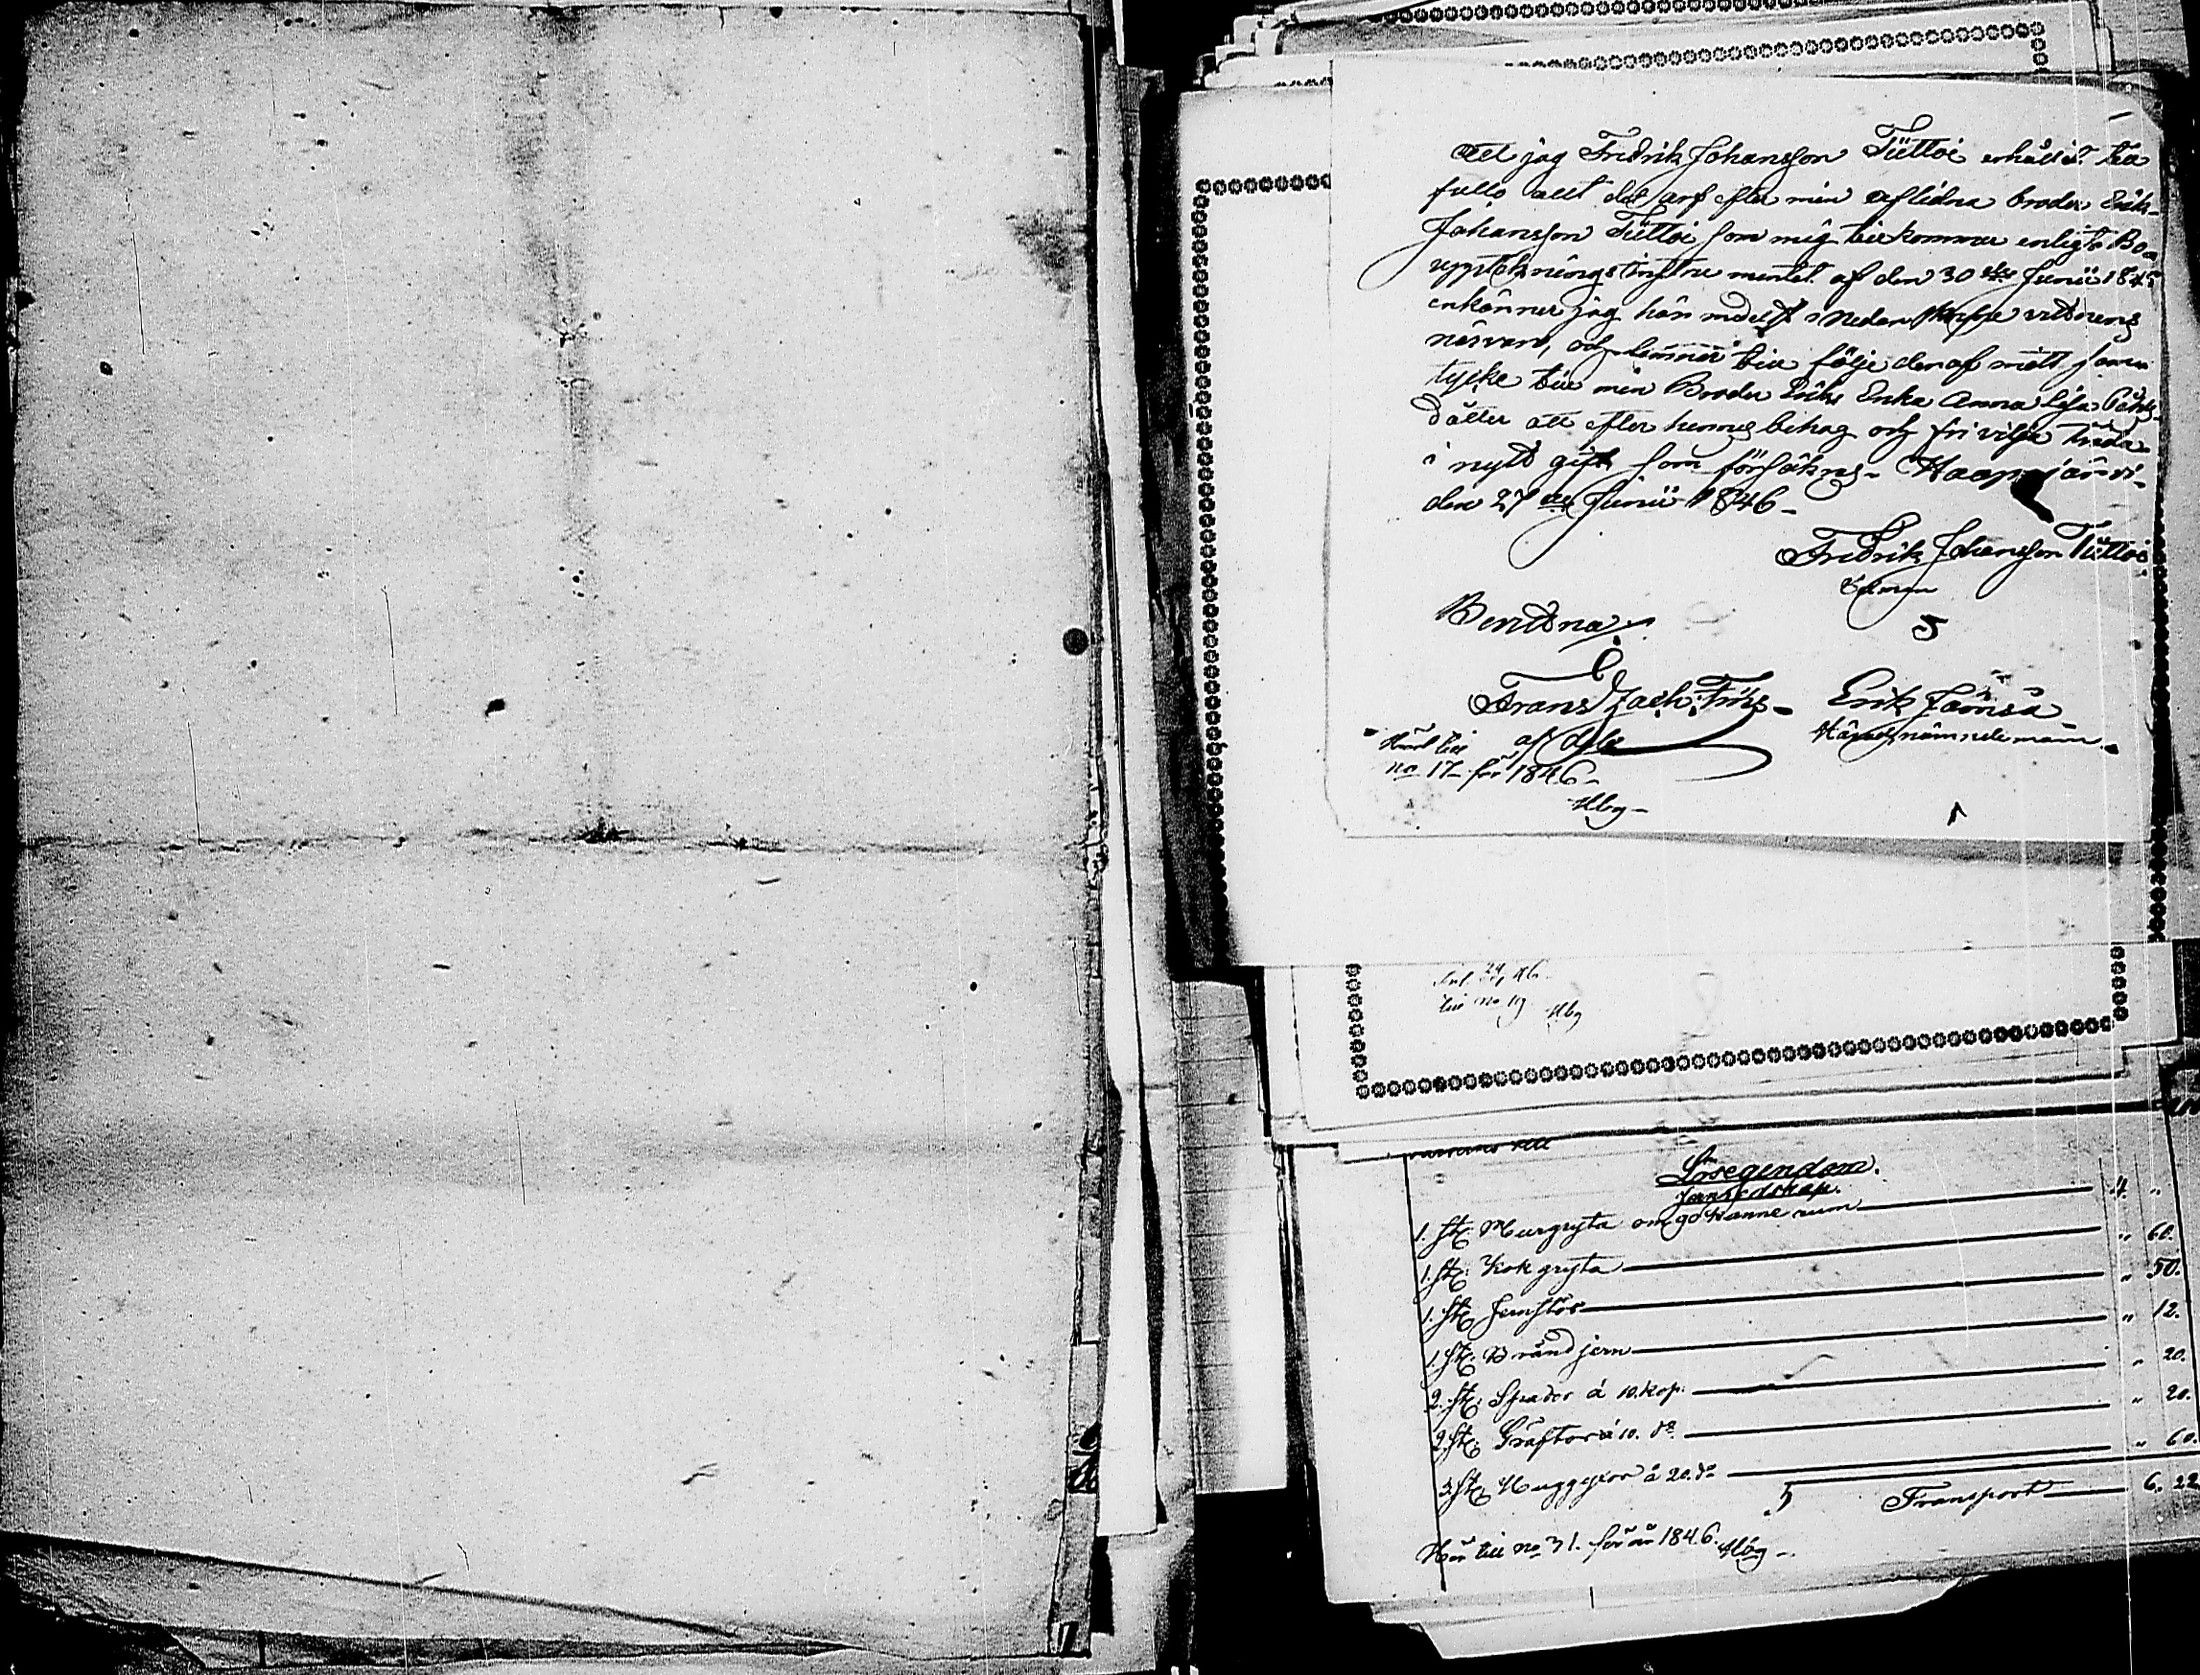 Att jag Fredrik Johansson Tiittoi erhållit till
fullo allt det arf efter min aflidna broder Erik
Johansson Tiittoi som mig tillkommer enligt Bo
upptekningsinstrumentet af den 30 Junii 1845
erkänner jag härmedelst i nedanskrefne vittnens
närvaro, och lemnar till följe deraf mitt sam
tycke till min Broder Eriks Enka Anna Lisa Pehrs
dotter att efter hennes behag och fri vilja träda
i nytt gifte som försäkras. Haapajärvi
den 27 Junii 1846
Fredrik Johansson Tiittoi
Bevittna
Frans Zach: Erik Jämsä
Häradsnämndeman
Hörd till
no 17 för 1846
Hbg
till no 19 Hbg
Lösegendom.
Jernredskap.
1. st. Murgryta om 90 kanne rum 4. "
1. st. Kokgryta " 60.
1. st. Jernstör " 50.
1. st. Brändjern " 12.
2. st. Spador á 10. kop. " 20.
2. st. Gräftor á 10. do " 20.
3. st. Huggyxor á 20. do " 60.
5 Transport 6. 22
Hör till no 31. för år 1846. Hbg